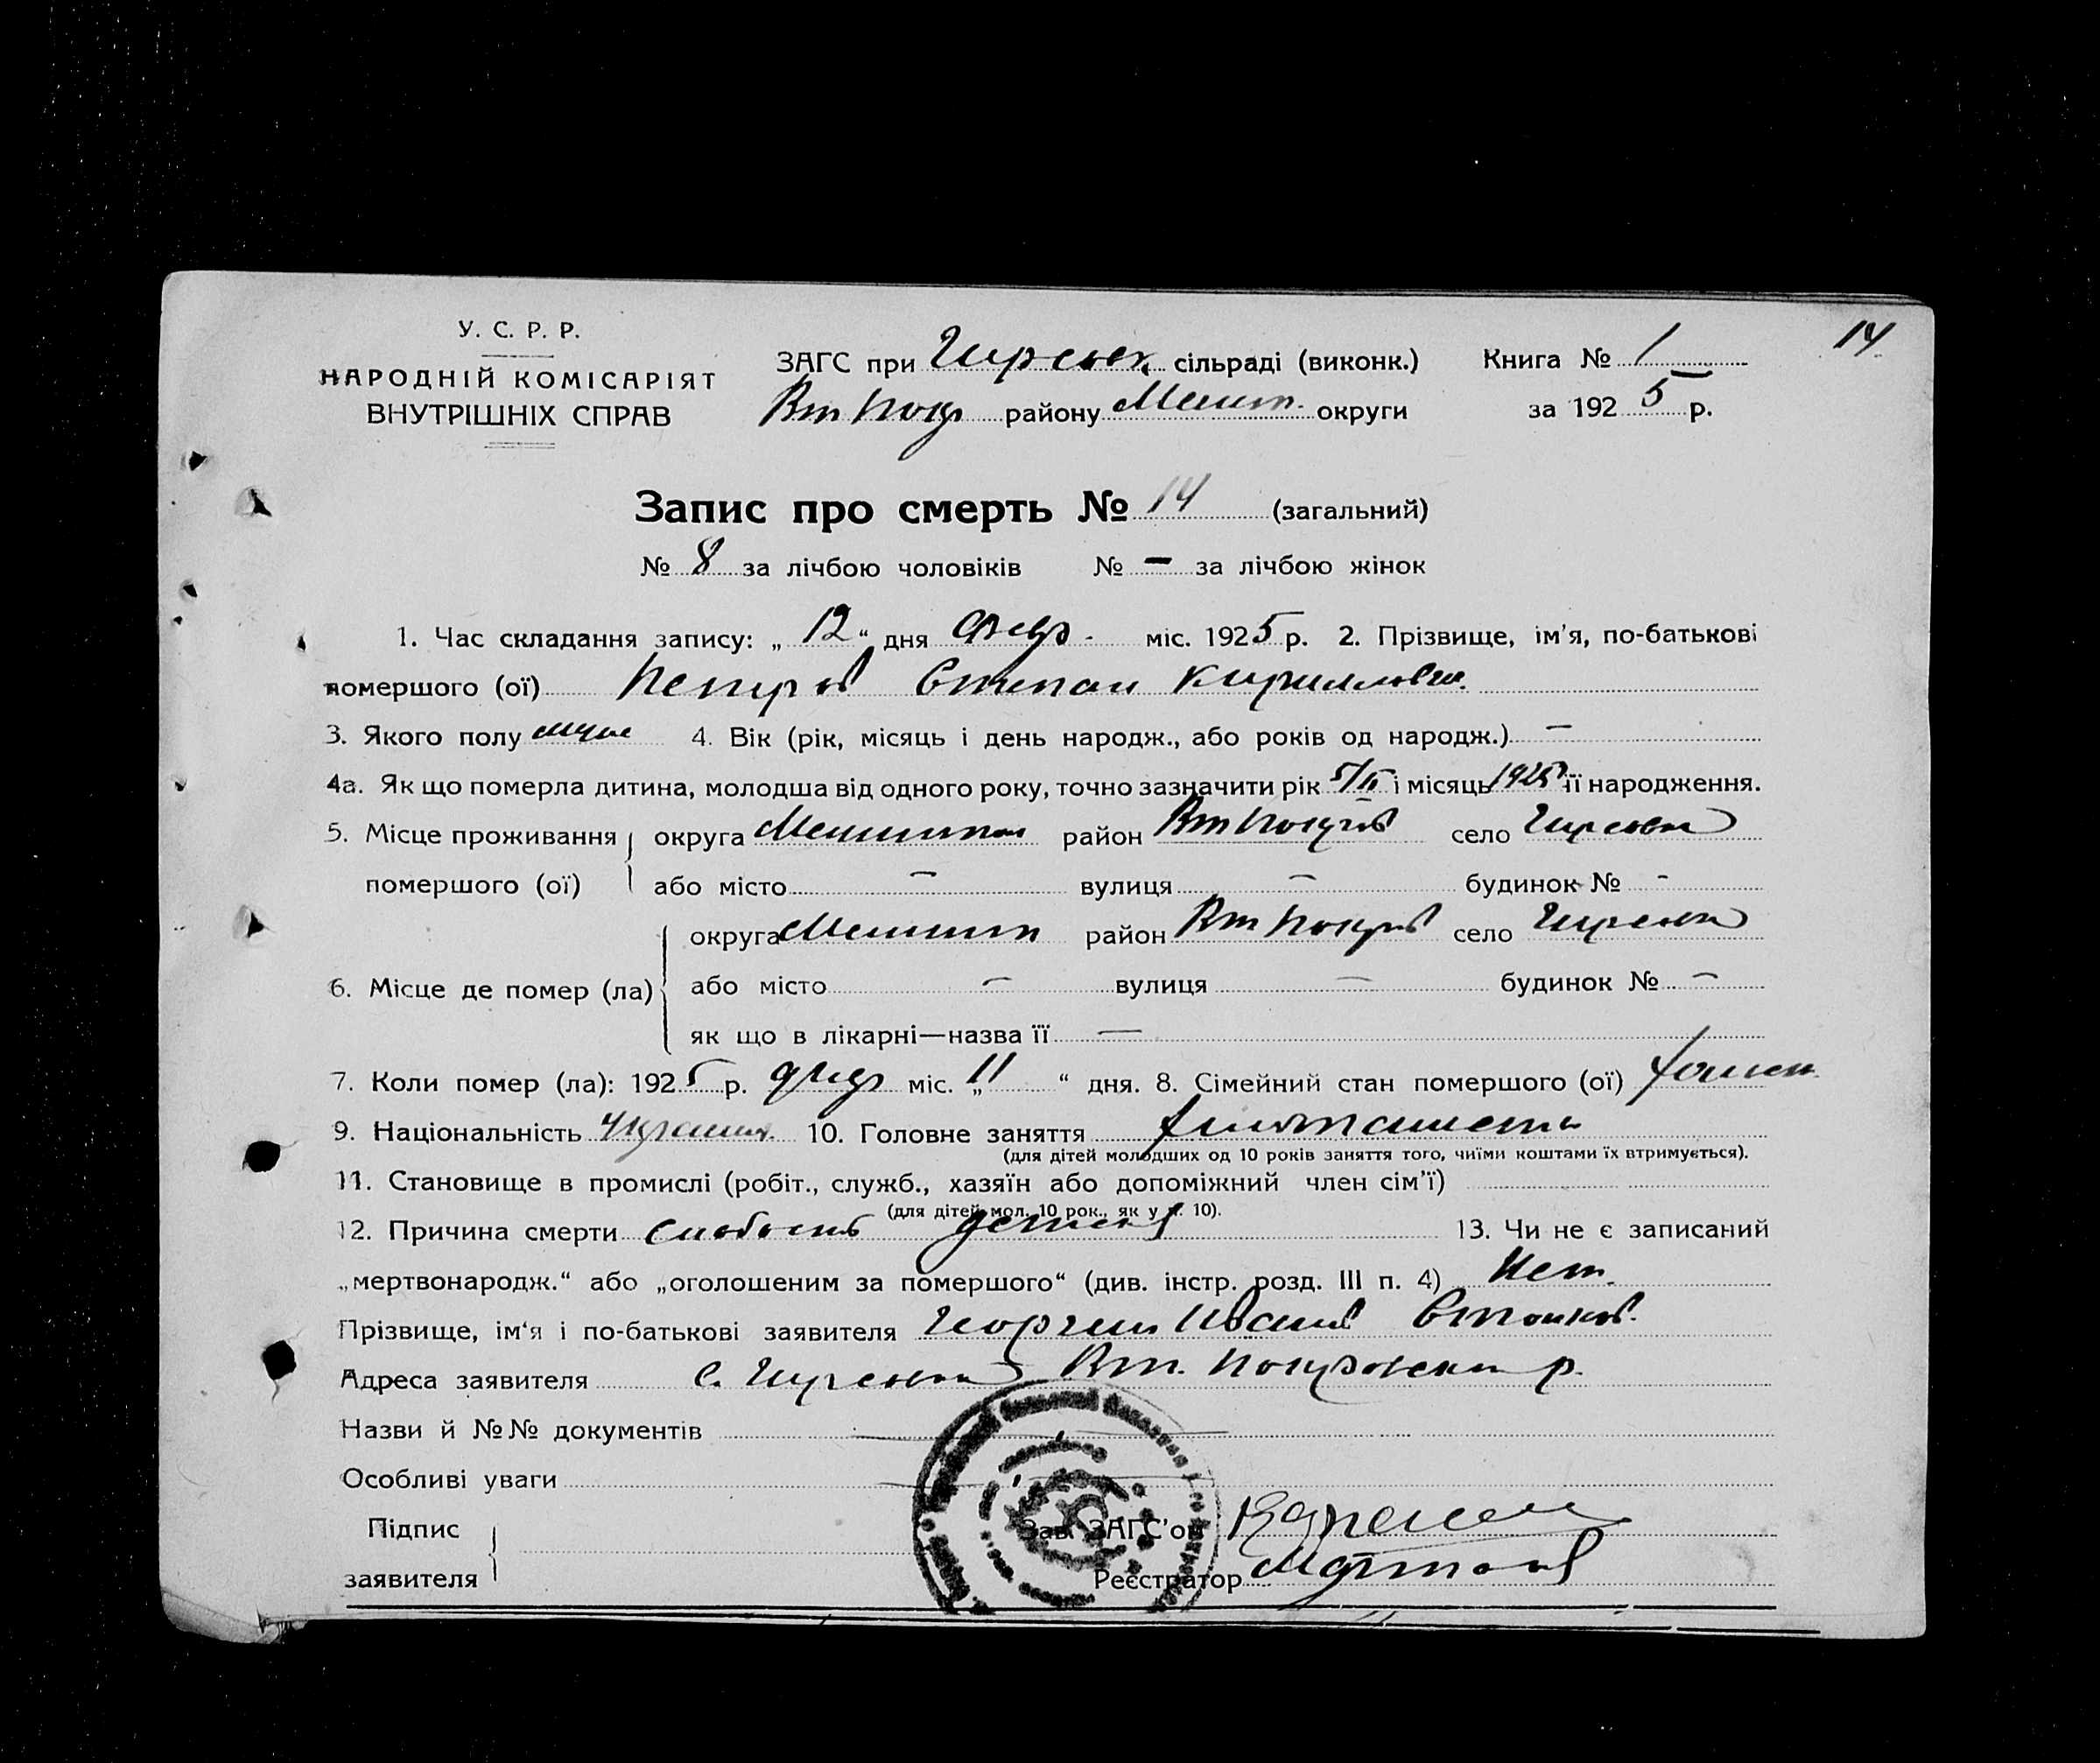 14
У. С. Р. Р.
НАРОДНІЙ КОМІСАРІЯТ
ВНУТРІШНІХ СПРАВ
ЗАГС при Гирсовк. сільраді (виконк.)
Вт Покр району Мелит. округи
Книга № 1
за 1925 р.
Запис про смерть № 14 (загальний)
№ 8 за лічбою чоловіків № — за лічбою жінок
1. Час складання запису: „ 12 “ дня февр. міс. 1925 р. 2. Прізвище, ім'я, по-батькові
помершого (ої) Петров Степан Кириллович.
3. Якого полу муж 4. Вік (рік, місяць і день народж., або років од народж.) —
4а. Як що померла дитина, молодша від одного року, точно зазначити рік 5/II і місяць 1925 її народження.
5. Місце проживання помершого (ої) округа Мелитоп район Вт Покров село Гирсовка
або місто — вулиця — будинок № -
6. Місце де помер (ла) округа Мелитоп район Вт Покров село Гирсовка
або місто — вулиця — будинок № —
як що в лікарні—назва її —
7. Коли помер (ла): 1925 р. февр міс. „ 11 “ дня. 8. Сімейний стан помершого (ої) холост
9. Національність 10. Головне заняття хлебопашество
(для дітей молодших од 10 років заняття того, чиїми коштами їх втримується).
11. Становище в промислі (робіт., служб., хазяїн або допоміжний член сім'ї)
(для дітей мол. 10 рок., як у п. 10).
12. Причина смерти слабость 13. Чи не є записаний
„мертвонародж.“ або „оголошеним за помершого“ (див. інстр. розд. III п. 4) Нет.
Прізвище, ім'я і по-батькові заявителя Георгий Иванов
Адреса заявителя с. Гирсовка Вт. Покровский р.
Назви й №№ документів
Особливі уваги
Підпис заявителя
Зав. ЗАГС'ом
Реєстратор